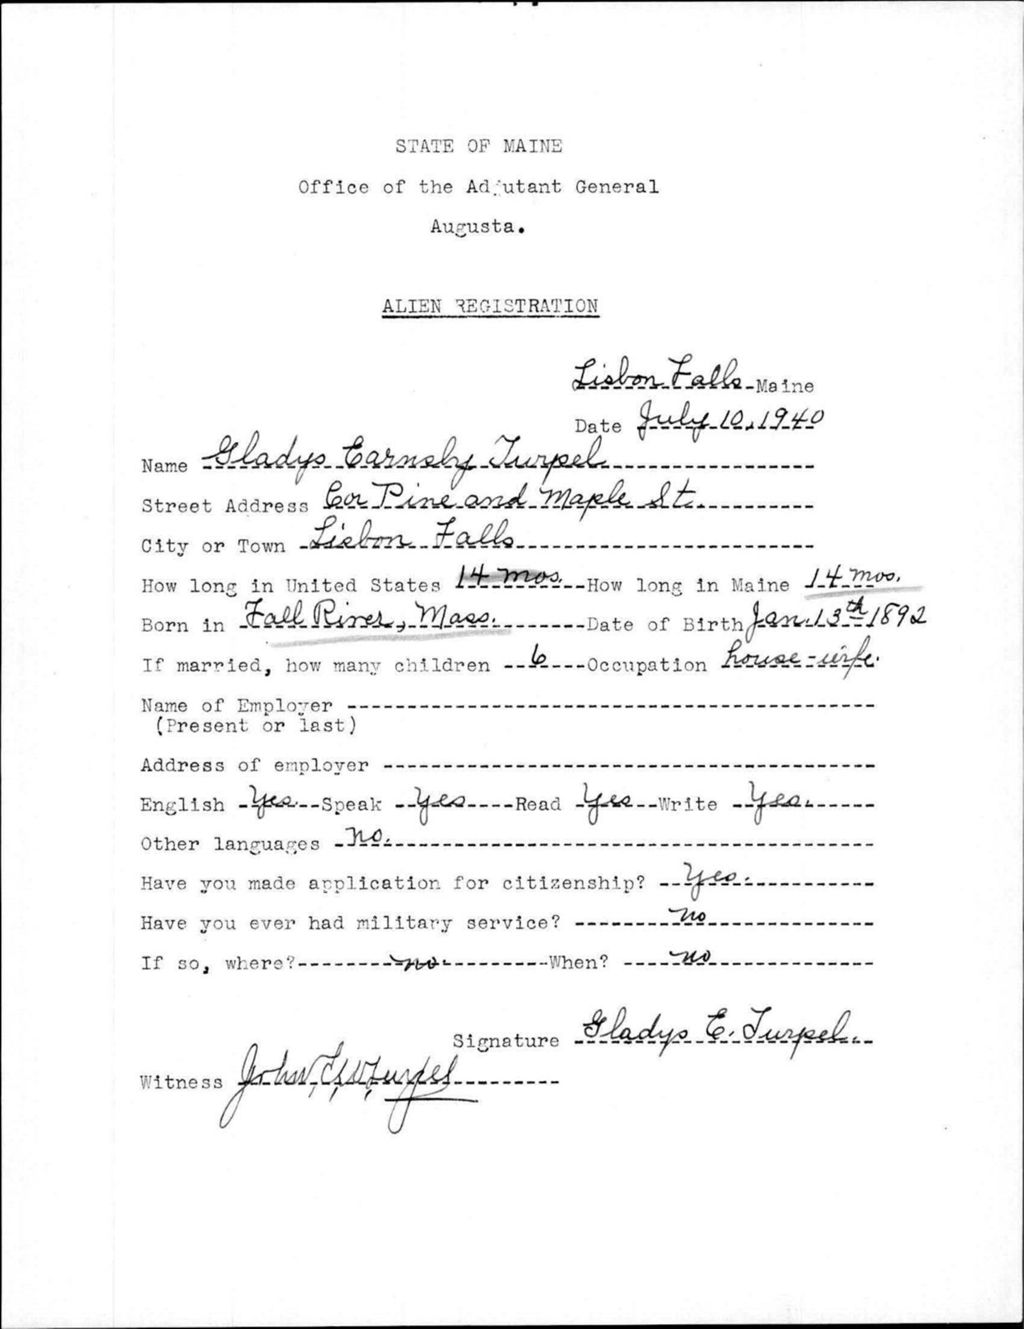 STATE OF MAINE
Office of the Adjutant General
Augusta.
ALIEN REGISTRATION
Lisbon Falls Maine
Date July 10, 1940
Name Gladys Earnsby Turpel
Street Address Cor Pine and Maple St.
City or Town Lisbon Falls
How long in United States 14 mos. How long in Maine 14 mos.
Born in Fall River, Mass. Date of Birth Jan. 13th 1892
If married, how many children 6 Occupation house-wife.
Name of Employer
(Present or last)
Address of employer
English Yes Speak Yes Read Yes Write Yes.
Other languages No.
Have you made application for citizenship? Yes.
Have you ever had military service? no
If so, where? no When? no
Signature Gladys E. Turpel.
Witness John Turpel